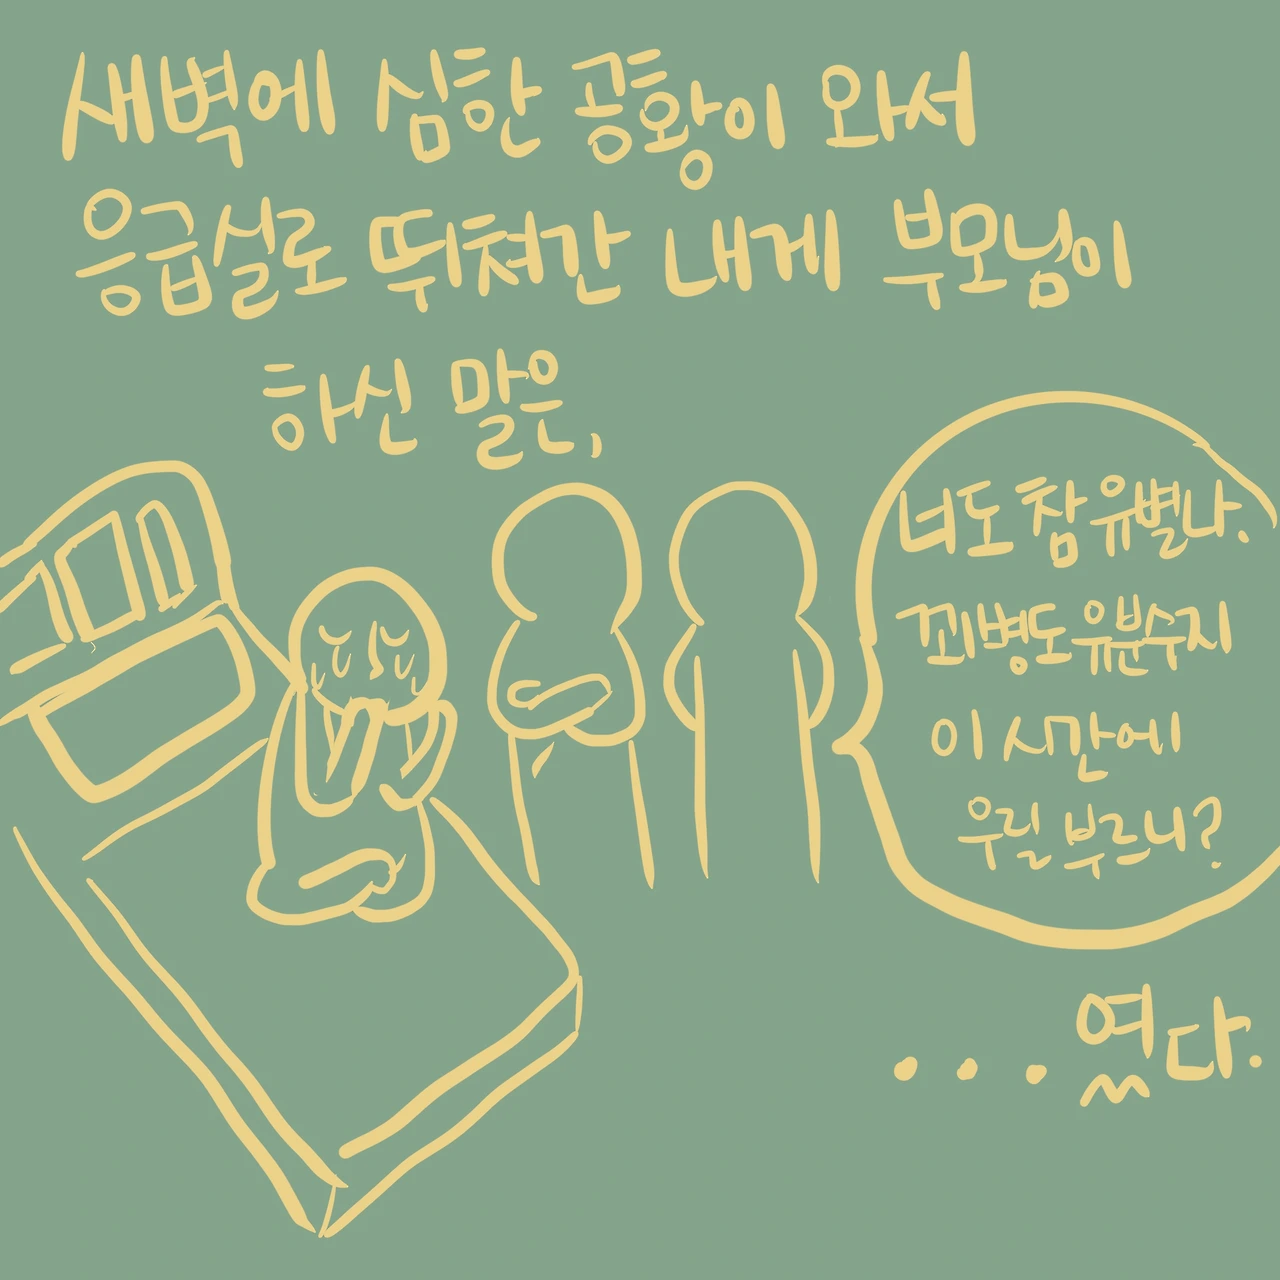 새벽에 심한 공황이 와서
응급실로 뛰쳐간 내게 부모님이
하신 말은,
너도 참 유별나.
꾀병도 유분수지
이 시간에
우릴 부르니?
...였다.